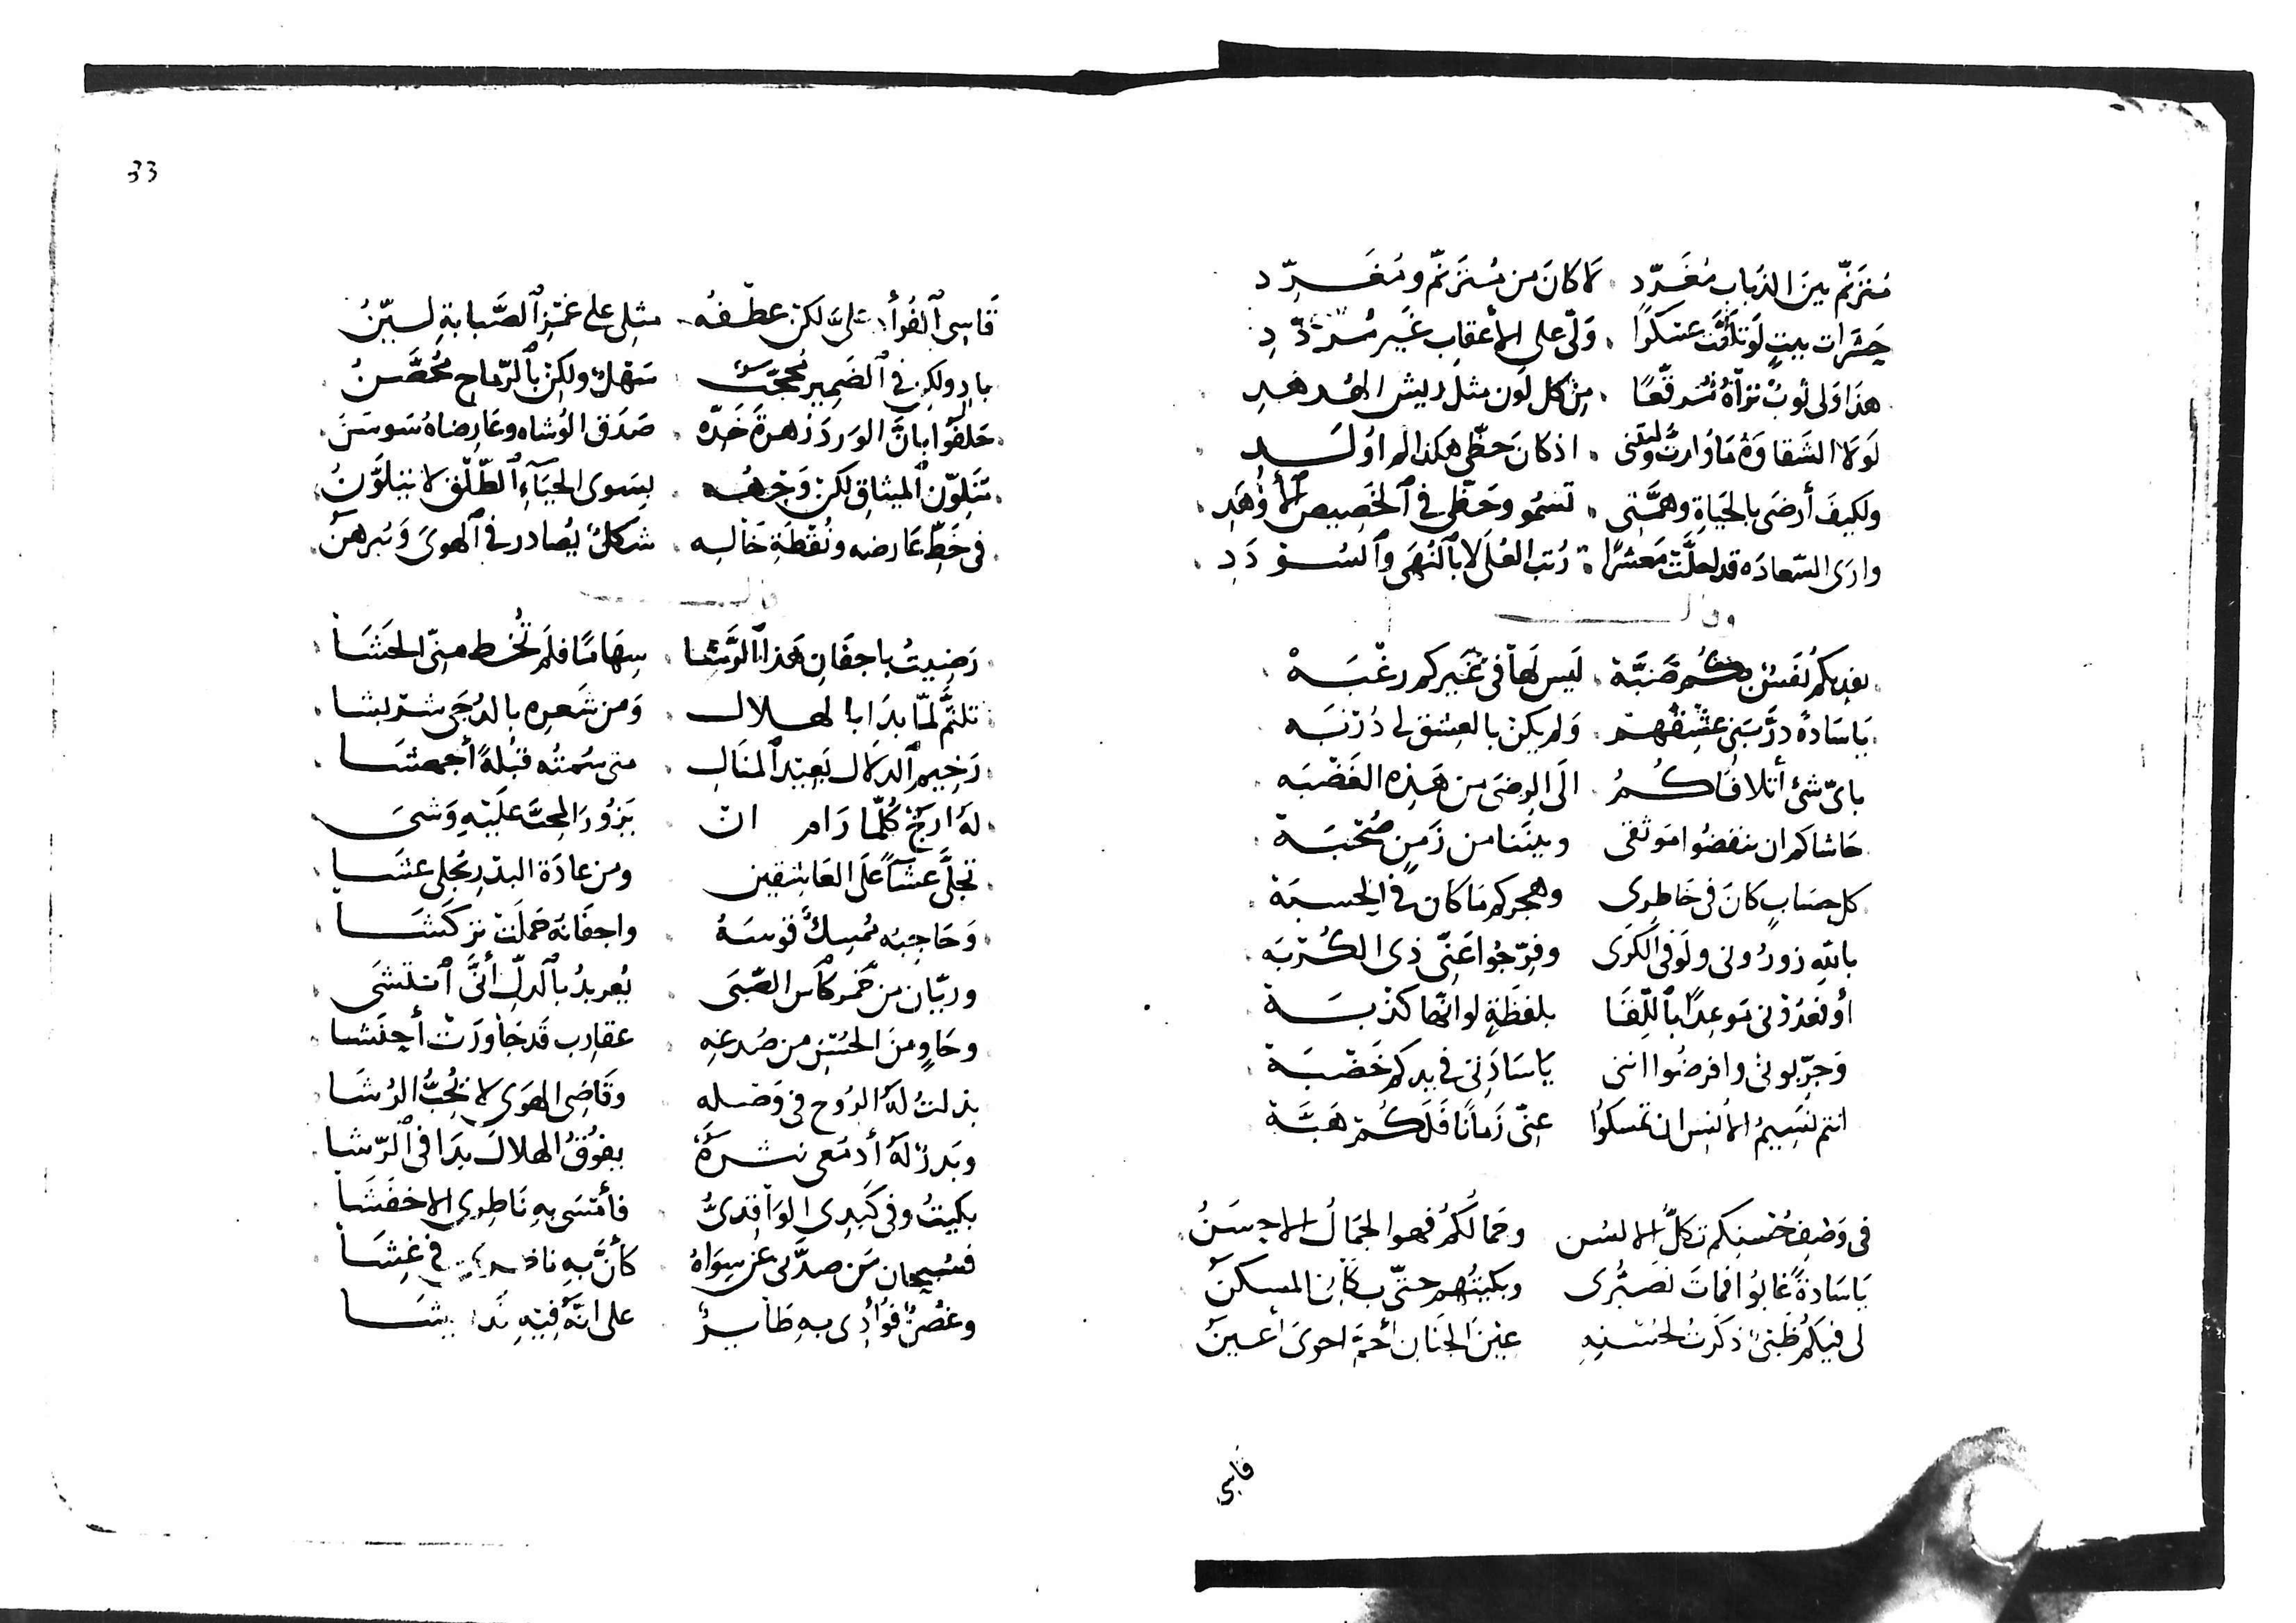 مُتَرَنِّم بينَ الذبَاب مُغَرّدِ لا كانَ من مُترنّم ومُغَرّدِ
حَشرات بيتٍ لَو تلقَّت عسكرًا وَلّى على الأعقاب غَير مُردّدِ
هذا وَلى ثوبٌ تراهُ مُرقّعًا من كل لون مثل ريش الهُدهُدِ
لَولا الشقاوَة مَا وُلدتُ وليتنى اذ كان حَظّى هكذا لم اولَدِ
ولكيفَ أرضَى بالحيَاةِ وهمَّتى تسمُو وحَظّى في الحَضِيض الأوهَدِ
وارَى السّعادَه قد لعلَّت مَعشرًا رُتب العُلَى لا بالنُهَى والسُودَدِ
وقال
يفديكم نَفسٌ بكُم صَبَّة لَيس لهَا فى غَيركم رغْبَه
يَا سَادةً درَّبَنى عشقهم وَلم يكن بالعشق لى دُرْبَه
باىّ شئ أتلافَاكُمُ الَى الرضَى من هَذِه الغَضْبَه
حَاشاكم ان تنقضُوا مَوثقى وبينَنا من زَمنٍ صُحْبَة
كل حسَابٍ كانَ فى خَاطرى وهجركم مَا كان فى الحسبَة
بالله زورُونى ولَو فى الكَرَى وفرّجُوا عَنّى ذى الكُرْبَه
أو فعدُوْنى مَوعِدًا باللّقَا بلفظَةٍ لو انّها كذْبَة
وَجرّبونى وافرضُوا اننى يَا سَادَتى فى يدكم خَضْبَة
انتم نسَيمُ الأنس ان تمسكوُا عنّى زَمانًا فَلَكُم هَبَّة
فى وَصْفِ حُسنكم تكلُّ الالسُن وجَمالكُم فهو الجمَالُ الاحسَنُ
يَا سَادةً غابُوا فماتَ تصَبُّرى وبكيتُهم حتّى بكانى المسكنُ
لى فيكم ظَبىٌ ذكَرتُ لحُسنهِ عِيْنَ الجنَان أحمّ احوىَ أعينُ
قاسى
33
قَاسِى الفُؤاد علىَّ لكن عطفُه مثلى على غمزِ الصَّبابةِ ليّنُ
بادٍ ولكن فى الضَمير مُحجّبٌ سَهْلٌ ولكن بالرّماح مُحَصَّنُ
حَلفُوا بانَّ الوَردَ زهرةُ خَدّه صَدَق الوُشاه وعَارضاهُ سَوسَنُ
مُتَلوّن الميثاقِ لكن وَجْهُه بسِوى الحيَآءِ الطَّلْق لا يتَلوَّنُ
فى خَطِّ عَارضه ونُقْطَةِ خَالِه شكلٌ يُصادر فى الهوىَ وَيُبرهنُ
وقال
رَضيتُ باجفَانِ هَذا الرَّشا سِهَامًا فلَم تُخط منِّى الحَشَا
تلثَّم لمّا بدَا بالهلال وَمن شَعره بالدُجَى شربشا
رَخيم الدلال بَعِيْد المنَال متى سُمتُه قُبلةً أجهشَا
لهُ ارَجٌ كُلّما رَام ان يَزُورَ المحبَّ علَيْهِ وَشىَ
تجلَّى عشآءً علَى العَاشِقين ومن عادَة البدْر يُجلى عشَا
وَحَاجبه مُمسِكٌ قوسَهُ واجفَانه حَملَتْ تركشَا
وريّان من خَمر كَأس الصّبَى يُعربدُ بالدلّ أنَّى انتشَى
وحَاوٍ منَ الحُسْنِ من صُدغهِ عقارب قَد جَاورَتْ أحنَشا
بذلتُ لَهُ الرُوح فى وَصْله وقَاضِى الهوَى لا يُحبُّ الرُشَا
وبَدرٌ لهُ أدمُعى نثرَة يفُوقُ الهلالَ بدَا فى الرّشا
بكيتُ وفى كَبدى الوَاقدىُّ فأمْسَى بهِ نَاظرى الاخفَشَا
فسُبحان مَن صدَّنى عَن سِوَاهُ كأنَّ بهِ ناظرى فى غِشَا
وغصُنٌ فؤادِى بهِ طَآيرٌ على انّهُ فيْهِ